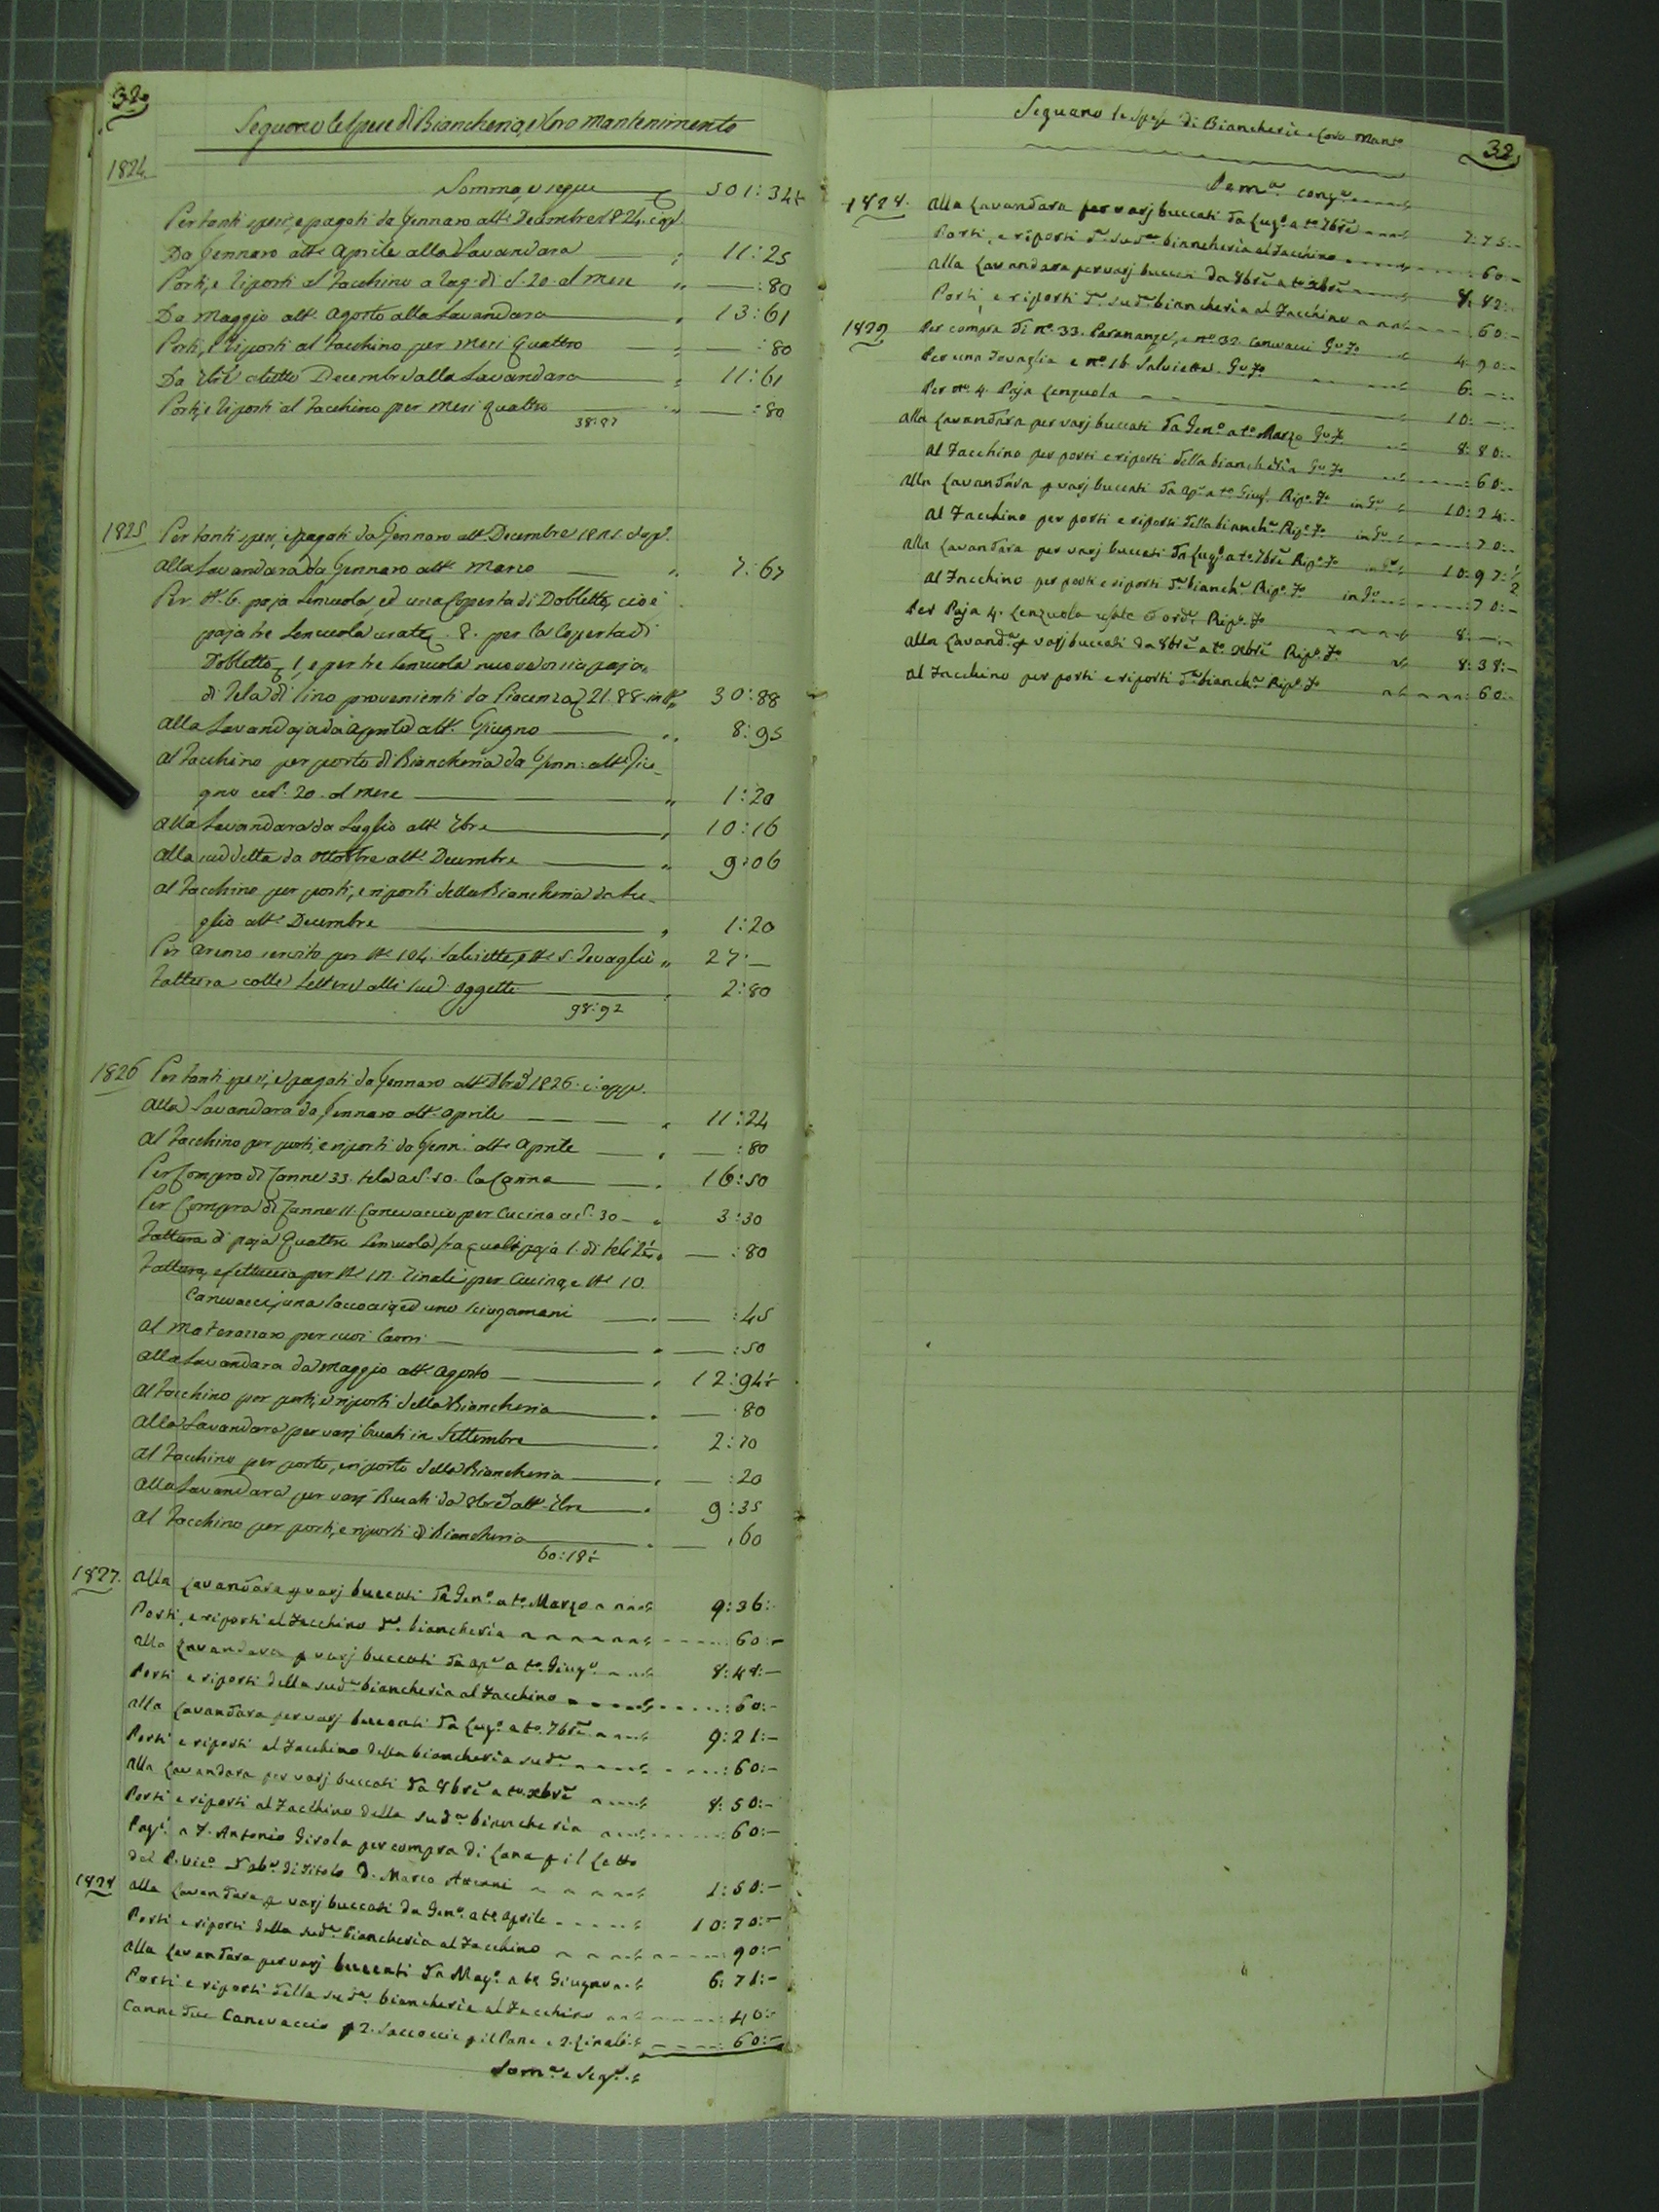 32
Seguono le Spese di Biancheria, e loro mantenimento
1824.
Somma, e segue 501:34½
Per tanti spesi, e pagati da Gennaro all. Decembre 1824. cioè
Da Gennaro all. Aprile alla Lavandara 11:25
Porti, e riporti al Facchino a rag. di S. 20. al mese —:80
Da Maggio all. Agosto alla Lavandara 13:61
Porti, e riporti al Facchino per mesi quattro —:80
Da 7bre a tutto Decembre alla Lavandara 11:61
Porti, e riporti al Facchino per mesi quattro —:80
38:87
1825 Per tanti spesi, e pagati da Gennaro all. Decembre 1825.
Alla Lavandara da Gennaro all. Marzo 7:67
Per N. 6. paja Lenzuola, ed una Coperta di Dobletto, cioè
paja tre Lenzuola usate 8. per la Coperta di
Dobletto 1, e per tre Lenzuola nuove paja
di Tela di lino provenienti da Piacenza 21.88. in tt. 30:88
Alla Lavandaja da Aprile all. Giugno 8:95
Al Facchino per porto di Biancheria da Genn. all. Giu-
gno a S. 20. al mese 1:20
Alla Lavandara da Luglio all. 7bre 10:16
Alla suddetta da Ottobre all. Decembre 9:06
Al Facchino per porti, e riporti della Biancheria da Lu-
glio all. Decembre 1:20
Per per N. 104. Salviette, e N. 5. Tovaglie 27:—
Fattura colle Lettere alli sud. oggetti 2:80
98:92
1826 Per tanti spesi, e pagati da Gennaro all. Xbre 1826.
Alla Lavandara da Gennaro all. Aprile 11:24
Al Facchino per porti, e riporti da Genn. all. Aprile —:80
Per Compra di Canne 33. tela a S. 50. la Canna 16:50
Per Compra di Canne 11. Canevaccio per Cucina a S. 30 3:30
Fattura di paja Quattro Lenzuola fra quali paja 1. di teli 2½ —:80
Fattura, e fettuccia per N. 12. Zinali per Cucina, e N. 10.
Canevacci, una saccoccia, ed uno sciugamani —:45
Al Materassaro per suoi lavori —:50
Alla Lavandara da Maggio all. Agosto 12:94½
Al Facchino per porti, e riporti della Biancheria —:80
Alla Lavandara per varj bucati in Settembre 2:70
Al Facchino per porto, e riporto della Biancheria —:20
Alla Lavandara per varj Bucati da 8bre all. Xbre 9:35
Al Facchino per porti, e riporti di Biancheria —:60
60:18½
1827. Alla Lavandara p varj buccati da Gen.o a to. Marzo 9:36:
Porti, e riporti al Facchino d.a biancheria 60:—
Alla Lavandara p varj buccati da Ap.e a to. Giug.o 8:48:—
Porti e riporti della sud.a biancheria al Facchino :60:—
Alla Lavandara per varj buccati da Lug.o a to. 7bre 9:21:—
Porti e riporti al Facchino della biancheria sud.a :60:—
Alla Lavandara per varj buccati da 8bre a to. xbre 8:50:—
Porti e riporti al Facchino della sud.a biancheria :60:—
Pag.i a F. Antonio Girola per compra di Lana p il Letto
del P. Vic.o D. Marco 1:50:—
1828 Alla Lavandara p varj buccati da Gen.o a to Aprile 10:70:—
Porti e riporti della sud.a biancheria al Facchino :90:—
Alla Lavandara per varj buccati da Mag.o a to Giugno 6:71:—
Porti e riporti della sud.a biancheria al Facchino :40:—
Canne due Canevaccio p 2. Saccoccie p il Pane e 2. Zinali :60:—
Som.a e Seg.e
Seguono le Spese di Biancherie e loro Mant.o
32
Som.a
1828. Alla Lavandara per varj buccati da Lug.o a to 7bre 7:75:—
Porti, e riporti d. sud.a biancheria al Facchino :60:—
Alla Lavandara per varj buccati da 8bre a to xbre 8:82:
Porti, e riporti d. sud.a biancheria al Facchino :60:—
1829 Per compra di n.o 33. Parananze, e n.o 32. Canevacci 4:90:—
Per una Tovaglia e n.o 16 Salviette 6:—:
Per n.o 4. Paja Lenzuola 10:—:
Alla Lavandara per varj buccati da Gen.o a to. Marzo 8:80:—
Al Facchino per porti e riporti della biancheria :60:—
Alla Lavandara p varj buccati da Ap.e a to Giug.o 10:24:—
Al Facchino per porti e riporti della bianch.a :70:—
Alla Lavandara per varj buccati da Lug.o a to. 7bre 10:97:½
Al Facchino per porti e riporti d.a bianch.a :70:—
Per Paja 4. Lenzuola 8:—:—
Alla Lavand.a p varj buccati da 8bre a to. xbre 8:38:—
Al Facchino per porti e riporti d.a bianch.a :60:—